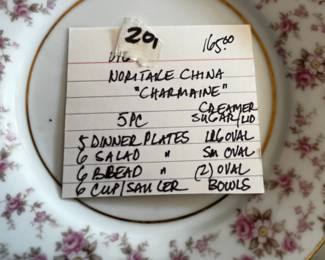 201
165.00
NORITAKE CHINA
"CHARMAINE"
5 PC CREAMER SUGAR/LID
5 DINNER PLATES LRG OVAL
6 SALAD " SM OVAL
6 BREAD " (2) OVAL
6 CUP/SAUCER BOWLS